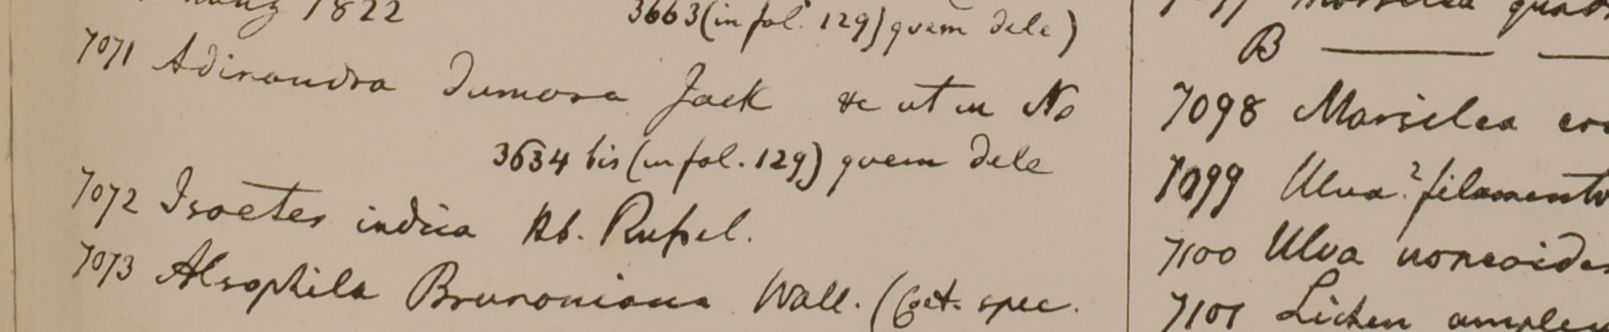 1822
3663 (in fol. 129) quem dele)
7071 Adinandra dumosa Jack &c ut in No
3634 bis (in fol. 129) quem dele
7072 Isoetes indica Hb. Russel.
7073 Alsophila Brunoniana Wall. (Cat. spec.
B
7098 Marsilea
7099 Ulva? filamento
7100 Ulva
7101 Lichen